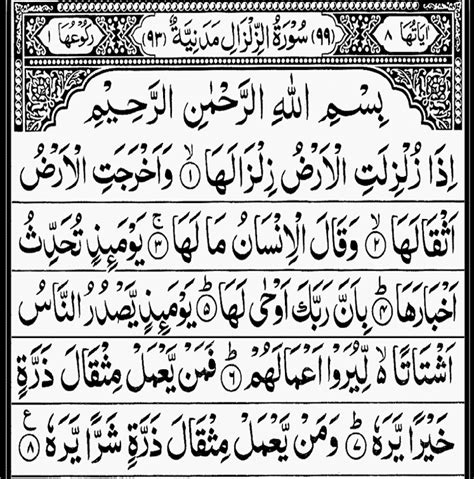 اٰيَاتُهَا ٨ (٩٩) سُوْرَةُ الزِّلْزَالِ مَدَنِيَّةٌ (٩٣) رُكُوْعُهَا ١
بِسْمِ اللّٰهِ الرَّحْمٰنِ الرَّحِيْمِ
اِذَا زُلْزِلَتِ الْاَرْضُ زِلْزَالَهَا ۙ﴿١﴾ وَاَخْرَجَتِ الْاَرْضُ
اَثْقَالَهَا ۙ﴿٢﴾ وَقَالَ الْاِنْسَانُ مَا لَهَا ۚ﴿٣﴾ يَوْمَئِذٍ تُحَدِّثُ
اَخْبَارَهَا ؕ﴿٤﴾ بِاَنَّ رَبَّكَ اَوْحٰى لَهَا ؕ﴿٥﴾ يَوْمَئِذٍ يَّصْدُرُ النَّاسُ
اَشْتَاتًا ۙ۬ لِّيُرَوْا اَعْمَالَهُمْ ؕ﴿٦﴾ فَمَنْ يَّعْمَلْ مِثْقَالَ ذَرَّةٍ
خَيْرًا يَّرَهٗ ؕ﴿٧﴾ وَمَنْ يَّعْمَلْ مِثْقَالَ ذَرَّةٍ شَرًّا يَّرَهٗ ࣖ﴿٨﴾